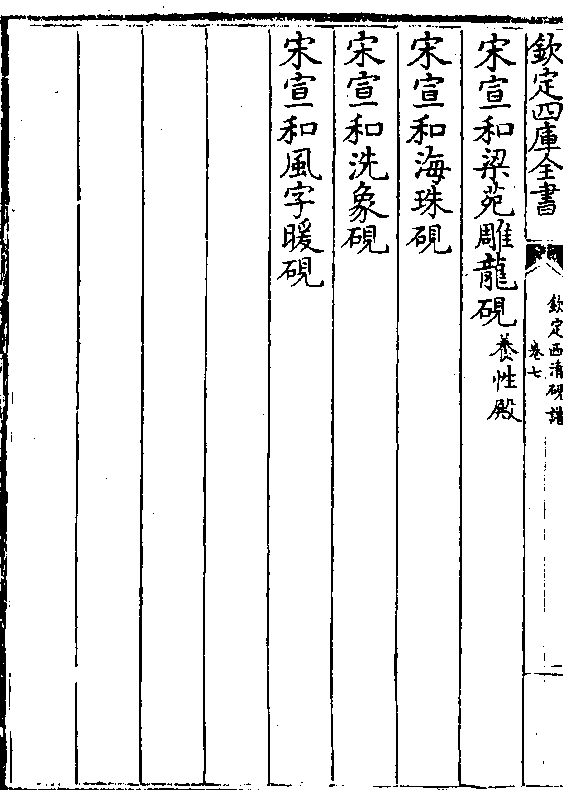 欽定四庫全書
欽定西清硯譜
卷七
宋宣和梁苑雕龍硯養性殿
宋宣和海珠硯
宋宣和洗象硯
宋宣和風字暖硯